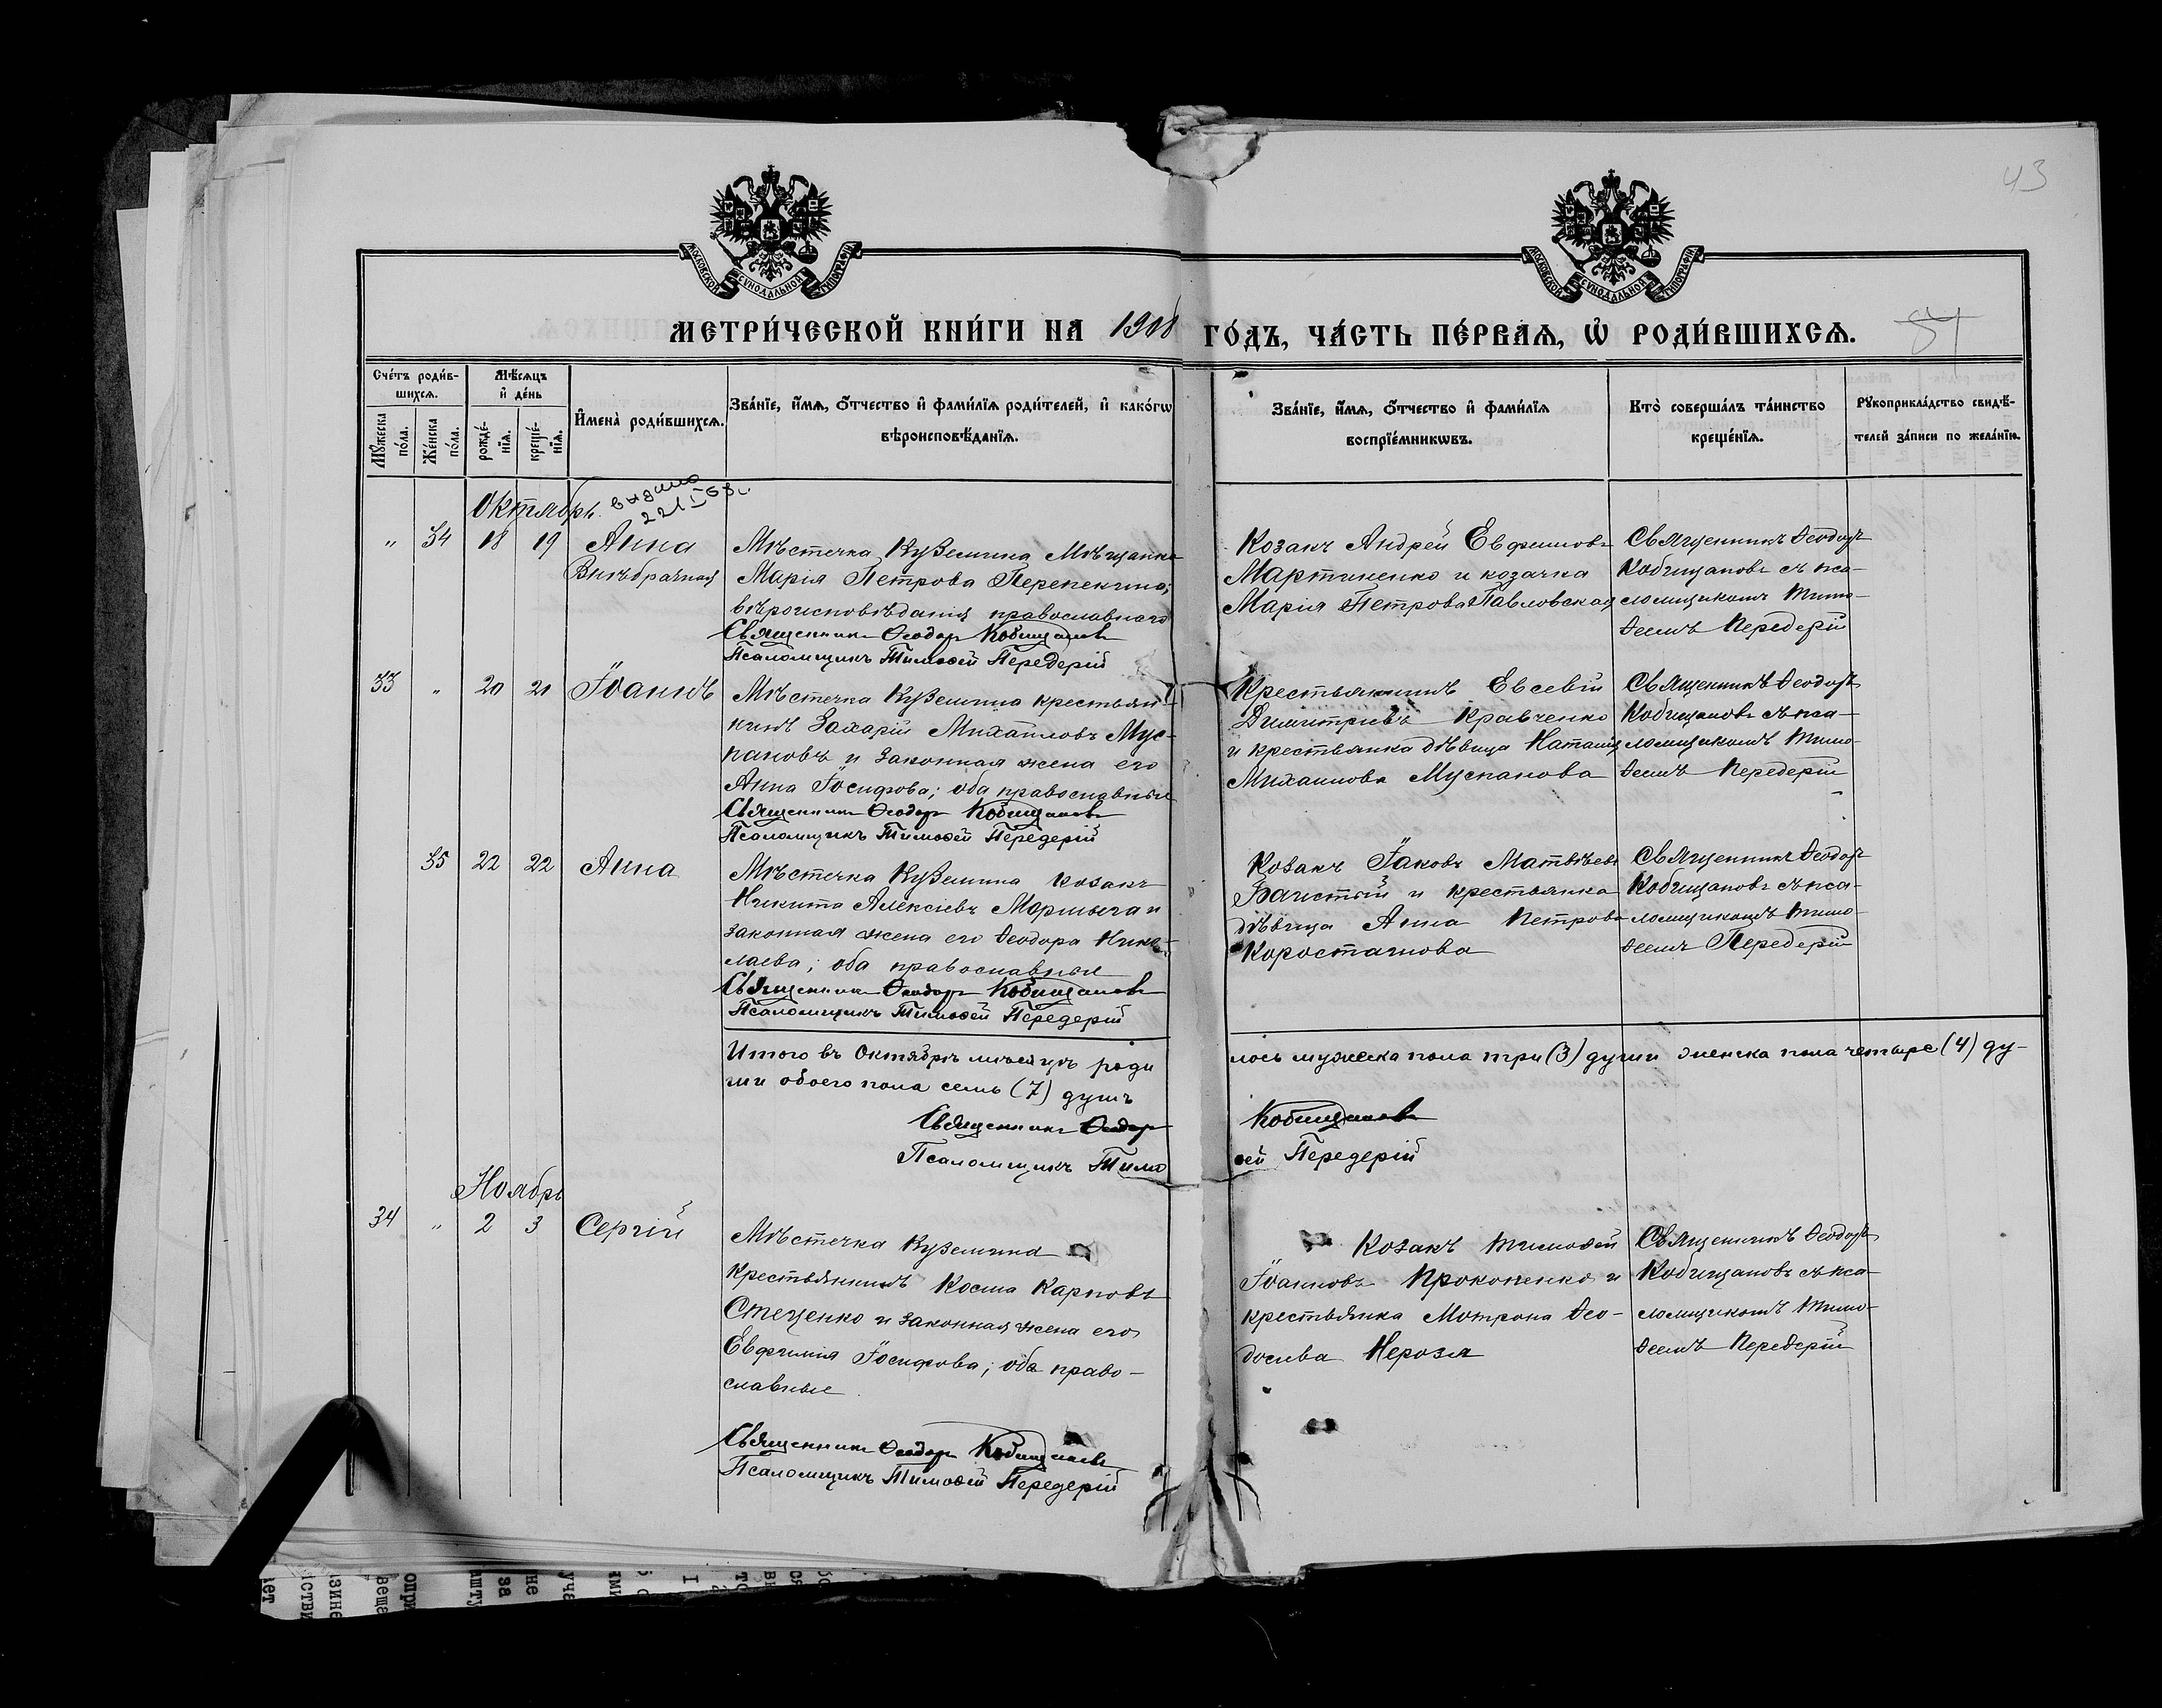 43
МОСКОВСКОЙ СѴНОДАЛЬНОЙ ТИПОГРАФІИ
МОСКОВСКОЙ СѴНОДАЛЬНОЙ ТИПОГРАФІИ
МЕТРИ́ЧЕСКОЙ КНИ́ГИ НА 1908 ГО́ДЪ, ЧА́СТЬ ПЕ́РВАѦ, Ѡ҆ РОДИ́ВШИХСѦ.
Сче́тъ роди́в-
шихсѧ.
Мꙋ́жеска по́ла.
Же́нска по́ла.
Мѣ́сѧцъ
и҆ де́нь
рожде́-
нїѧ.
креще́-
нїѧ.
И҆мена̀ роди́вшихсѧ.
Зва́нїе, и҆́мѧ, ѻ҆́тчество и҆ фами́лїѧ роди́телей, и҆ како́гѡ
вѣроисповѣ́данїѧ.
Зва́нїе, и҆́мѧ, ѻ҆́тчество и҆ фами́лїѧ
воспрїе́мникѡвъ.
Кто̀ соверша́лъ та́инство
креще́нїѧ.
Рꙋкоприкла́дство свидѣ́-
телей за́писи по жела́нїю.
Октябрь
выдано
22/I 63 г.
" 34 18 19 Анна
Внѣбрачная
Мѣстечка Куземина Мѣщанка
Марія Петрова Перепекина;
вѣроисповѣданія православнаго
Священникъ Ѳеодоръ Кобищановъ
Псаломщикъ Тимоѳей Передерій
Козакъ Андрей Евфимовъ
Мартиненко и козачка
Марія Петрова Павловская
Священникъ Ѳеодоръ
Кобищановъ съ пса-
ломщикомъ Тимо-
ѳеемъ Передерій
33 " 20 21 Іоаннъ
Мѣстечка Куземина крестьян-
нинъ Захарій Михаиловъ Мус-
пановъ и законная жена его
Анна Іосифова; оба православные
Священникъ Ѳеодоръ Кобищановъ
Псаломщикъ Тимоѳей Передерій
Крестьянинъ Евсевій
Димитріевъ Кравченко
и крестьянка дѣвица Наталія
Михаилова Муспанова
Священникъ Ѳеодоръ
Кобищановъ съ пса-
ломщикомъ Тимо-
ѳеемъ Передерій
35 22 22 Анна
Мѣстечка Куземина козакъ
Никита Алексіевъ и
законная жена его Ѳеодора Нико-
лаева; оба православные
Священникъ Ѳеодоръ Кобищановъ
Псаломщикъ Тимоѳей Передерій
Козакъ Іаковъ Матвѣевъ
и крестьянка
дѣвица Анна Петрова
Священникъ Ѳеодоръ
Кобищановъ съ пса-
ломщикомъ Тимо-
ѳеемъ Передерій
Итого въ Октябрѣ мѣсяцѣ роди
лось мужеска пола три (3) души женска пола четыре (4) ду-
ши обоего пола семь (7) душъ
Священникъ Ѳеодоръ Кобищановъ
Псаломщикъ Тимоѳей Передерій
Ноябрь
34 " 2 3 Сергій
Мѣстечка Куземина
крестьянинъ Косма Карповъ
Стеценко и законная жена его
Евфимія Іосифова; оба право-
славные
Священникъ Ѳеодоръ Кобищановъ
Псаломщикъ Тимоѳей Передерій
Козакъ Тимоѳей
Іоанновъ Прокопенко и
крестьянка Мотрона Ѳео-
досіева Нерозя
Священникъ Ѳеодоръ
Кобищановъ съ пса-
ломщикомъ Тимо-
ѳеемъ Передерій